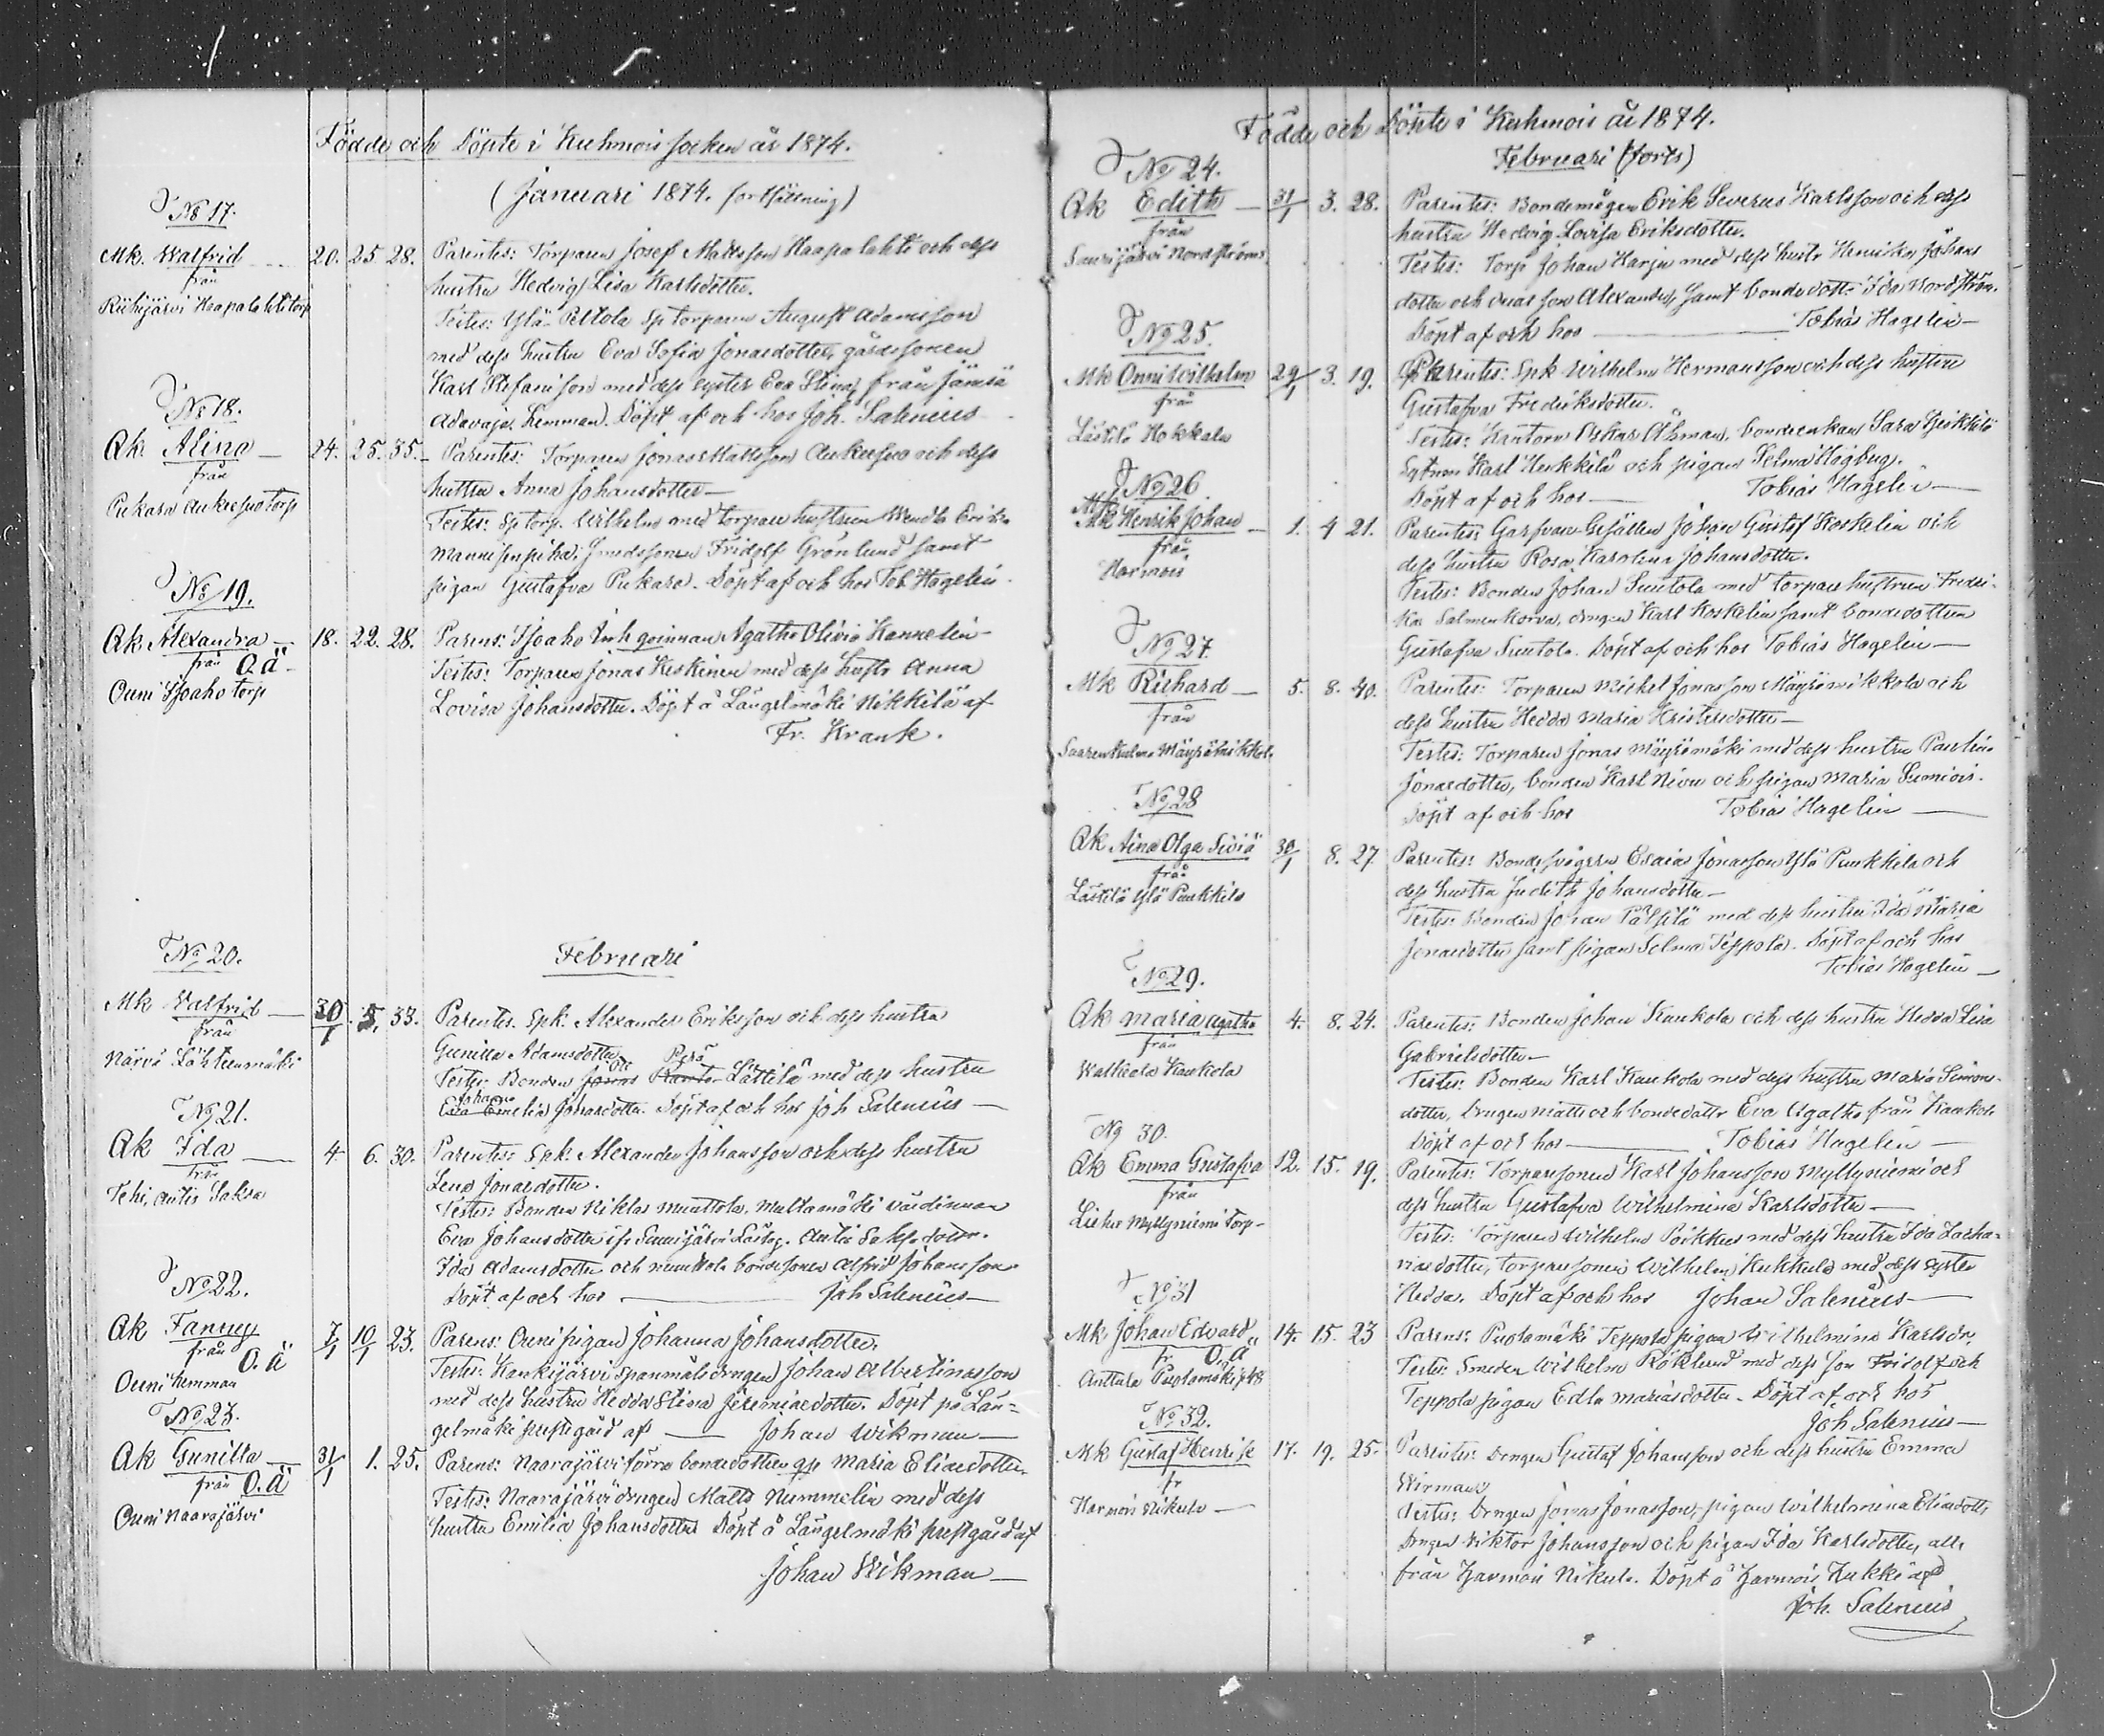 Födde och Döpte i Kuhmois socken år 1874.
(Januari 1874. fortsättning)
No 17.
Mk. Walfrid 20. 25 28. Parentes: Torparen Josef Mattsson Haapalahti och dess
från
hustru Hedvig Lisa Karlsdotter.
Riihijärvi Haapalahti torp
Testes: Ylä Peltola Sp torparen August Adamsson
med dess hustru Eva Sofia Jonasdotter, gårdssonen
Karl Stefansson med dess syster Eva Stina, från Jämsä
hemman. Döpt af och hos Joh. Salenius
No 18.
Qk. Alina 24. 25. 35. Parentes: Torparen Jonas Mattsson Aukeesuo och dess
från
hustru Anna Johansdotter
Pukara Aukeesuo torp
Testes: Sp torp. Wilhelm med torpare hustrun Wendla
smedssonen Fridolf Grönlund samt
pigan Gustafva Pukara. Döpt af och hos Tob. Hagelin.
No 19.
Qk Alexandra 18. 22. 28. Parens: Isoaho Inhysqvinnan Agatha Olivia Kannelin
från O.ä
Testes: Torparen Jonas Keskinen med dess hustr Anna
Ouni Isoaho torp
Lovisa Johansdotter. Döpt å Längelmäki Nikkilä af
Fr. Krank.
Februari
No 20.
Mk Walfrid 30/1 5. 33. Parentes. Spk. Alexander Eriksson och dess hustru
från
Gunilla Adamsdotter
Närvä Lähteenmäki
Testes: Bonden Lästilä med dess hustru
Johanna
Eva Emelia Jonasdotter. Döpt af och hos Joh Salenius
No 21.
Qk Ida 4 6. 30. Parentes: Spk. Alexander Johansson och dess hustru
från
Lena Jonasdotter.
Tehi, Antis Saksa
Testes: Bonden Niklas Multamäki värdinnan
Eva Johansdotter
Ida Adamsdotter och bondesonen Alfrid Johansson
Döpt af och hos Joh Salenius
No 22.
Qk Fanny 7/1 10/1 23. Parens: Ouni pigan Johanna Johansdotter.
från O.ä
Testes: Kankijärvi spanmålsdrengen Johan Albertinusson
Ouni hemman
med dess hustru Hedda Stina Jeremiasdotter. Döpt på Län-
gelmäki prestgård af Johan Wikman
No 23.
Qk Gunilla 31/1 1. 25. Parens: Naarajärvi förra bondedottern Maria Eliasdotter.
från O.ä
Testes: Naarajärvi drengen Matts Nummelin med dess
Ouni Naarajärvi
hustru Emilia Johansdotter Döpt å Längelmäki prestgård af
Johan Wikman
Födde och Döpte i Kuhmois år 1874.
Februari (forts)
No 24.
Qk Edith 31/1 3. 28. Parentes: Bondemågen Erik Severus Karlsson och dess
från
hustru Hedvig Lovisa Eriksdotter.
Saarijärvi Nordströms
Testes: Torp Johan Harju med dess hustr Henrika Johans
dotter och deras son Alexander, samt bondedott. Ida Nordström.
Döpt af och hos Tobias Hagelin
No 25.
Mk Onni Wilhelm 29/1 3. 19. Parentes: Spk Wilhelm Hermansson och dess hustru
från
Gustafva Fredriksdotter.
Lästilä Hokkala
Testes: Kantorn Oskar Öhman, bondeenkan Sara Heikkilä
Karl Heikkilä och pigan Selma Högbug.
Döpt af och hos Tobias Hagelin
No 26
Mk Henrik Johan 1. 4 21. Parentes: Garfvare Gesällen Johan Gustaf Koskelin och
från
dess hustru Rosa Karolina Johansdotter.
Harmois
Testes: Bonden Johan Suutola med torpare hustrun Fredri-
ka Salmenkorva, drengen Karl Koskelin samt bondedottern
Gustafva Suutola. Döpt af och hos Tobias Hagelin
No 27.
Mk Richard 5. 8. 40. Parentes: Torparen Michel Jonasson Mäyrämikkola och
från
dess hustru Hedda Maria Kristersdotter
Testes: Torparen Jonas Mäyrämäki med dess hustru Paulin
Jonasdotter, bonden Karl Nivu och pigan Maria
Döpt af och hos Tobias Hagelin
No 28
Qk Aina Olga Siviä 30/1 8. 27. Parentes: Bondesvågern Esaias Jonasson Ylä Puukkila och
från
dess hustru Judith Johansdotter
Lästilä Ylä Puukkila
Testes: Bonden Johan Pätsilä med dess hustru Ida Maria
Jonasdotter samt pigan Selma Teppola. Döpt af och hos
Tobias Hagelin
No 29.
Qk Maria Agatha 4. 8. 24. Parentes: Bonden Johan Kaukola och dess hustru Hedda Lisa
från
Gabrielsdotter
Kaukola
Testes: Bonden Karl Kaukola med dess hustru Maria Simons-
dotter, Drengen Matts och bondedottr Eva Agatha från Kaukola
Döpt af och hos Tobias Hagelin
No 30.
Qk Emma Gustafva 12. 15. 19. Parentes: Torparesonen Karl Johansson Myllyniemi och
från
dess hustru Gustafva Wilhelmina Karlsdotter
Myllyniemi torp
Testes: Torparen Wilhelm Pöikkeus med dess hustru Ida Zacha-
riasdotter, torparesonen Wilhelm Kukkula med dess syster
Hedda. Döpt af och hos Johan Salenius
No 31
Mk Johan Edvard 14. 15. 23 Parens: Puolamäki Teppola pigan Wilhelmina Karlsdr.
fr O.ä
Testes: Smeden Wilhelm Röklund med dess son Fridolf och
Anttila Puolamäki
Teppola pigan Edla Mariasdotter. Döpt af och hos
Joh Salenius
No 32.
Mk Gustaf Henrik 17. 19. 25. Parentes: Drengen Gustaf Johansson och dess hustru Emma
fr
Wirman
Harmois Nikula
Testes: Drengen Jonas Jonasson, pigan Wilhelmina Eliasdottr
Drengen Viktor Johansson och pigan Ida Karlsdotter, alle
från Harmois Nikula. Döpt å Harmois af
Joh. Salenius